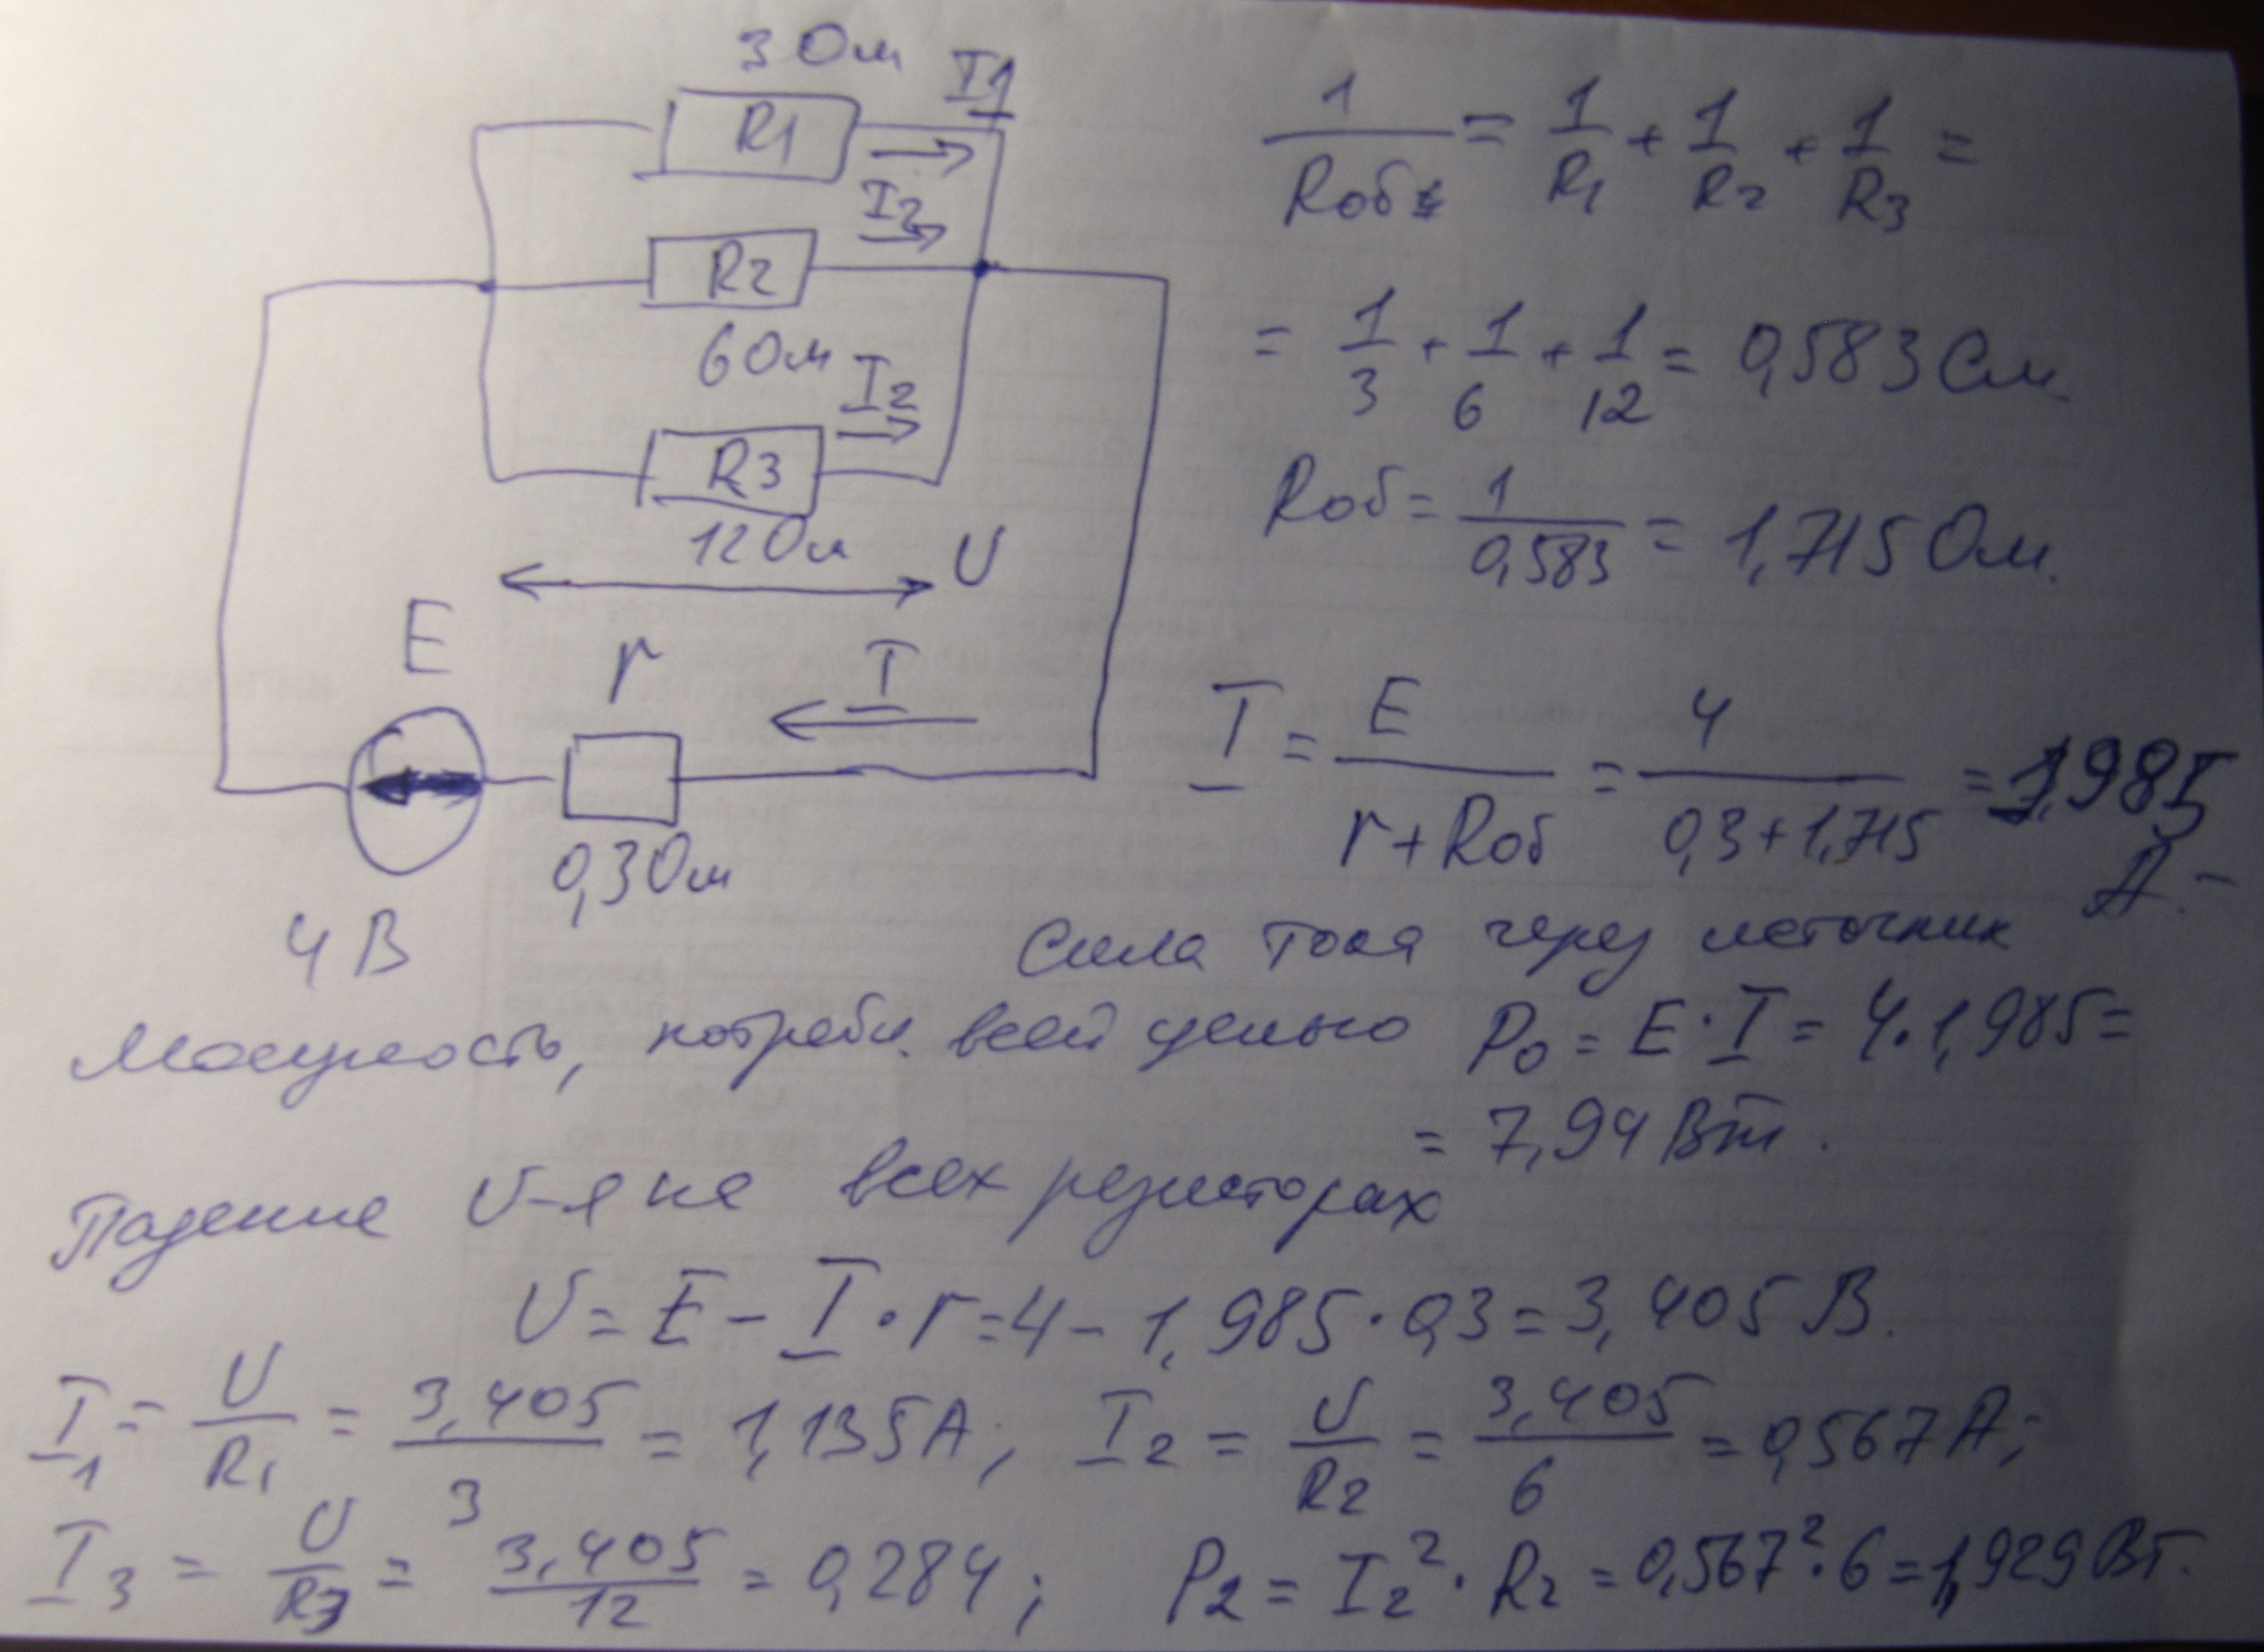 3 Ом
I1
R1
I2
R2
6 Ом
I2
R3
12 Ом
U
E
r
I
0,3 Ом
4 В
1/Rоб = 1/R1 + 1/R2 + 1/R3 =
= 1/3 + 1/6 + 1/12 = 0,583 См.
Rоб = 1/0,583 = 1,715 Ом.
I = E/(r+Rоб) = 4/(0,3+1,715) = 1,985
А. –
Сила тока через источник
Мощность, потребл. всей цепью P0 = E·I = 4·1,985 =
= 7,94 Вт.
Падение U-я на всех резисторах
U = E – I·r = 4 – 1,985·0,3 = 3,405 В.
I1 = U/R1 = 3,405/3 = 1,135 А; I2 = U/R2 = 3,405/6 = 0,567 А;
I3 = U/R3 = 3,405/12 = 0,284; P2 = I2²·R2 = 0,567²·6 = 1,929 Вт.